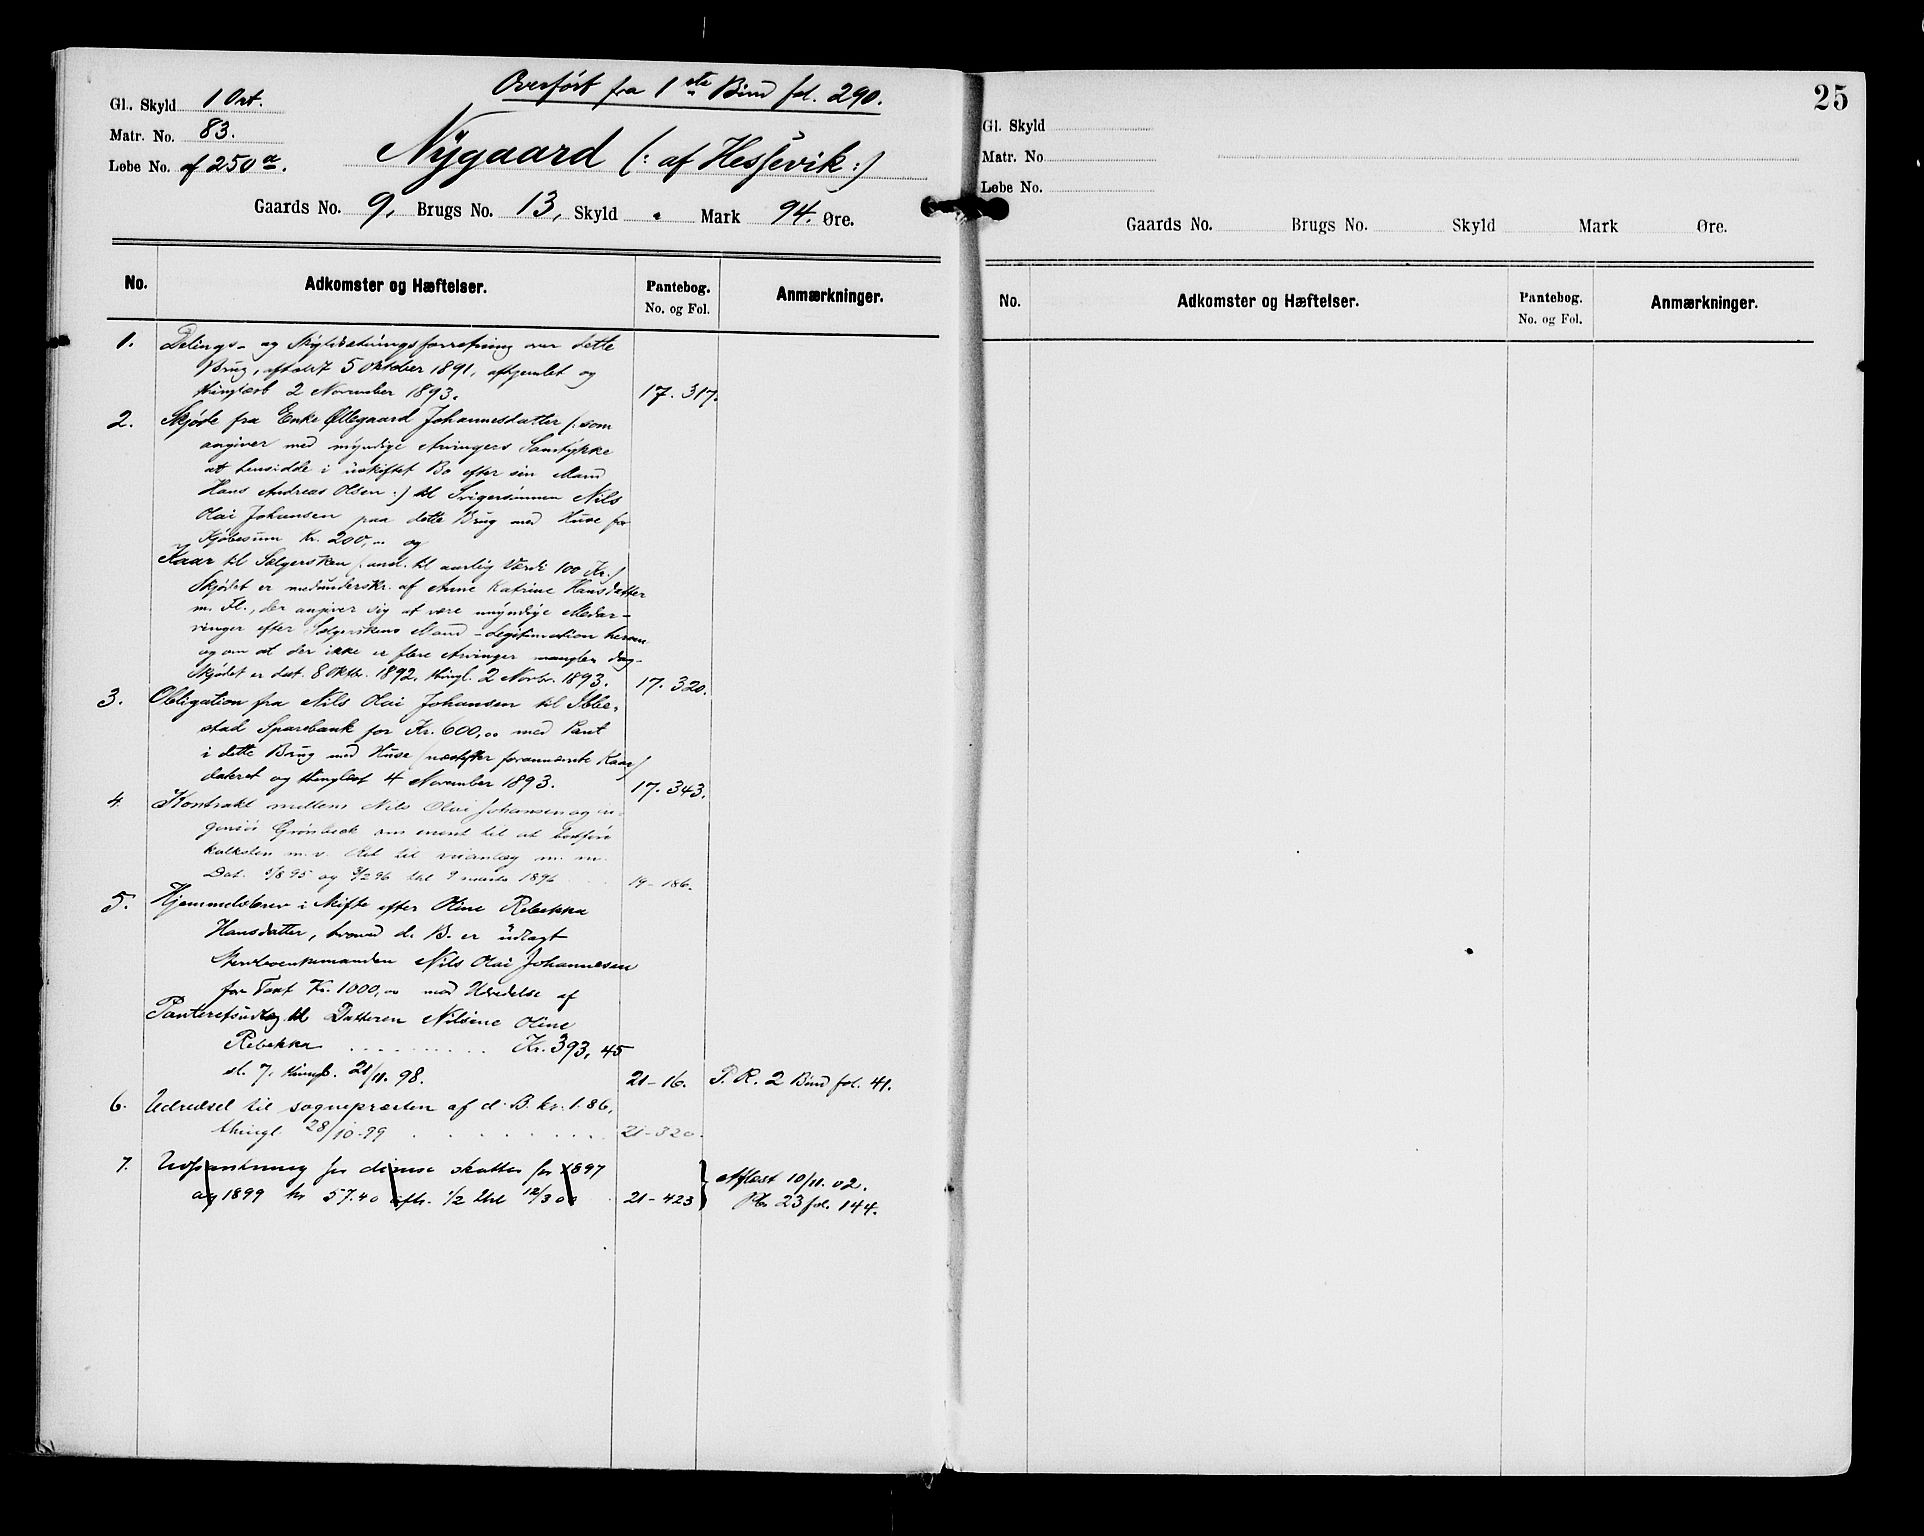 Overført fra 1ste Bind fol. 290.
Gl. Skyld 1 Ort.
Matr. No. 83.
Løbe No. af 250a.
Nygaard (: af Hessevik :)
Gaards No. 9, Brugs No. 13, Skyld Mark 94. Øre.
No. Adkomster og Hæftelser. Pantebog. No. og Fol. Anmærkninger.
1. Delings- og Skyldsætningsforretning over dette
Brug, afholdt 5 Oktober 1891, afhjemlet og
thinglæst 2 November 1893. 17. 317.
2. Skjøde fra Enke Øllegaard Johannesdatter /: som
angiver med myndige Arvingers Samtykke
at hensidde i uskiftet Bo efter sin Mand
Hans Andreas Olsen :/ til Svigersønnen Nils
Olai Johansen paa dette Brug med Huse for
Kjøbesum Kr. 200,00 og
Kaar til Sælgersken (ansl. til aarlig Værdi 100 Kr.)
Skjødet er medunderskr. af Anne Katrine Hansdatter
m. Fl., der angiver sig at være myndige Medar-
vinger efter Sælgerskens Mand - Legitimation herom
og om at der ikke er flere Arvinger mangler dog -
Skjødet er dat. 8 Oktbr. 1892, thingl. 2 Novbr. 1893. 17. 320.
3. Obligation fra Nils Olai Johansen til Ibbe-
stad Sparebank for Kr. 600,00 med Pant
i dette Brug med Huse (næstefter forannævnte Kaar)
dateret og thinglæst 4 November 1893. 17. 343.
4. Kontrakt mellem Nils Olai Johansen og in-
geniør Grønbeck om eneret til at bortføre
kalksten m. v. Ret til veianlæg m. m.
Dat. 1/8 95 og 3/2 96 thl 9 marts 1896 19-186.
5. Hjemmelsbrev i Skifte efter Oline Rebekka
Hansdatter, hvorved d. B. er udlagt
Nils Olai Johannesen
for Taxt Kr. 1000,00 mod Udredelse af
til Datteren Nilsine Oline
Rebekka . . . . . . . . . Kr. 393,45
thingl. 21/11. 98. 21-16. P. R. 2 Bind fol. 41.
6. Udredsel til sognepræsten af d. B. kr. 1.86,
thingl 28/10-99 . . . . . . . . 21-320.
7. Udpantning for diverse skatter for 1897
og 1899 kr 57.40 afh. 1/2 thl 12/3 00 21-423 } Aflæst 10/11. 02.
Pb. 23 fol. 144.
25
Gl. Skyld
Matr. No
Løbe No.
Gaards No. Brugs No. Skyld Mark Øre.
No. Adkomster og Hæftelser. Pantebog. No. og Fol. Anmærkninger.